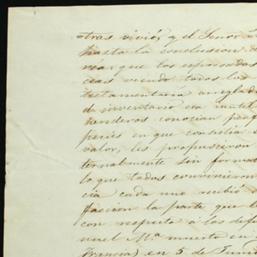 tras vivió, y el Señor
hasta la conclusion de
que los espresadas
viendo todos los
testamentaría arreglad
de inventario era inutil
herederos conocian
en que consistia
valor, les propusieron
ternalmente sin forma
lo que todos convinieron
cia cada uno recibió
faccion la parte que l
con respecto á los
nuel Mª muerto en
Francia) en 5 de Juni